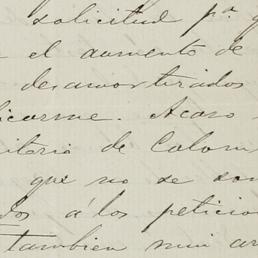 solicitud pª q
el aumento de
desamortizados
licarme. Acaso
itario de Colom
que no se son
dos á los peticio
tambien mui ar